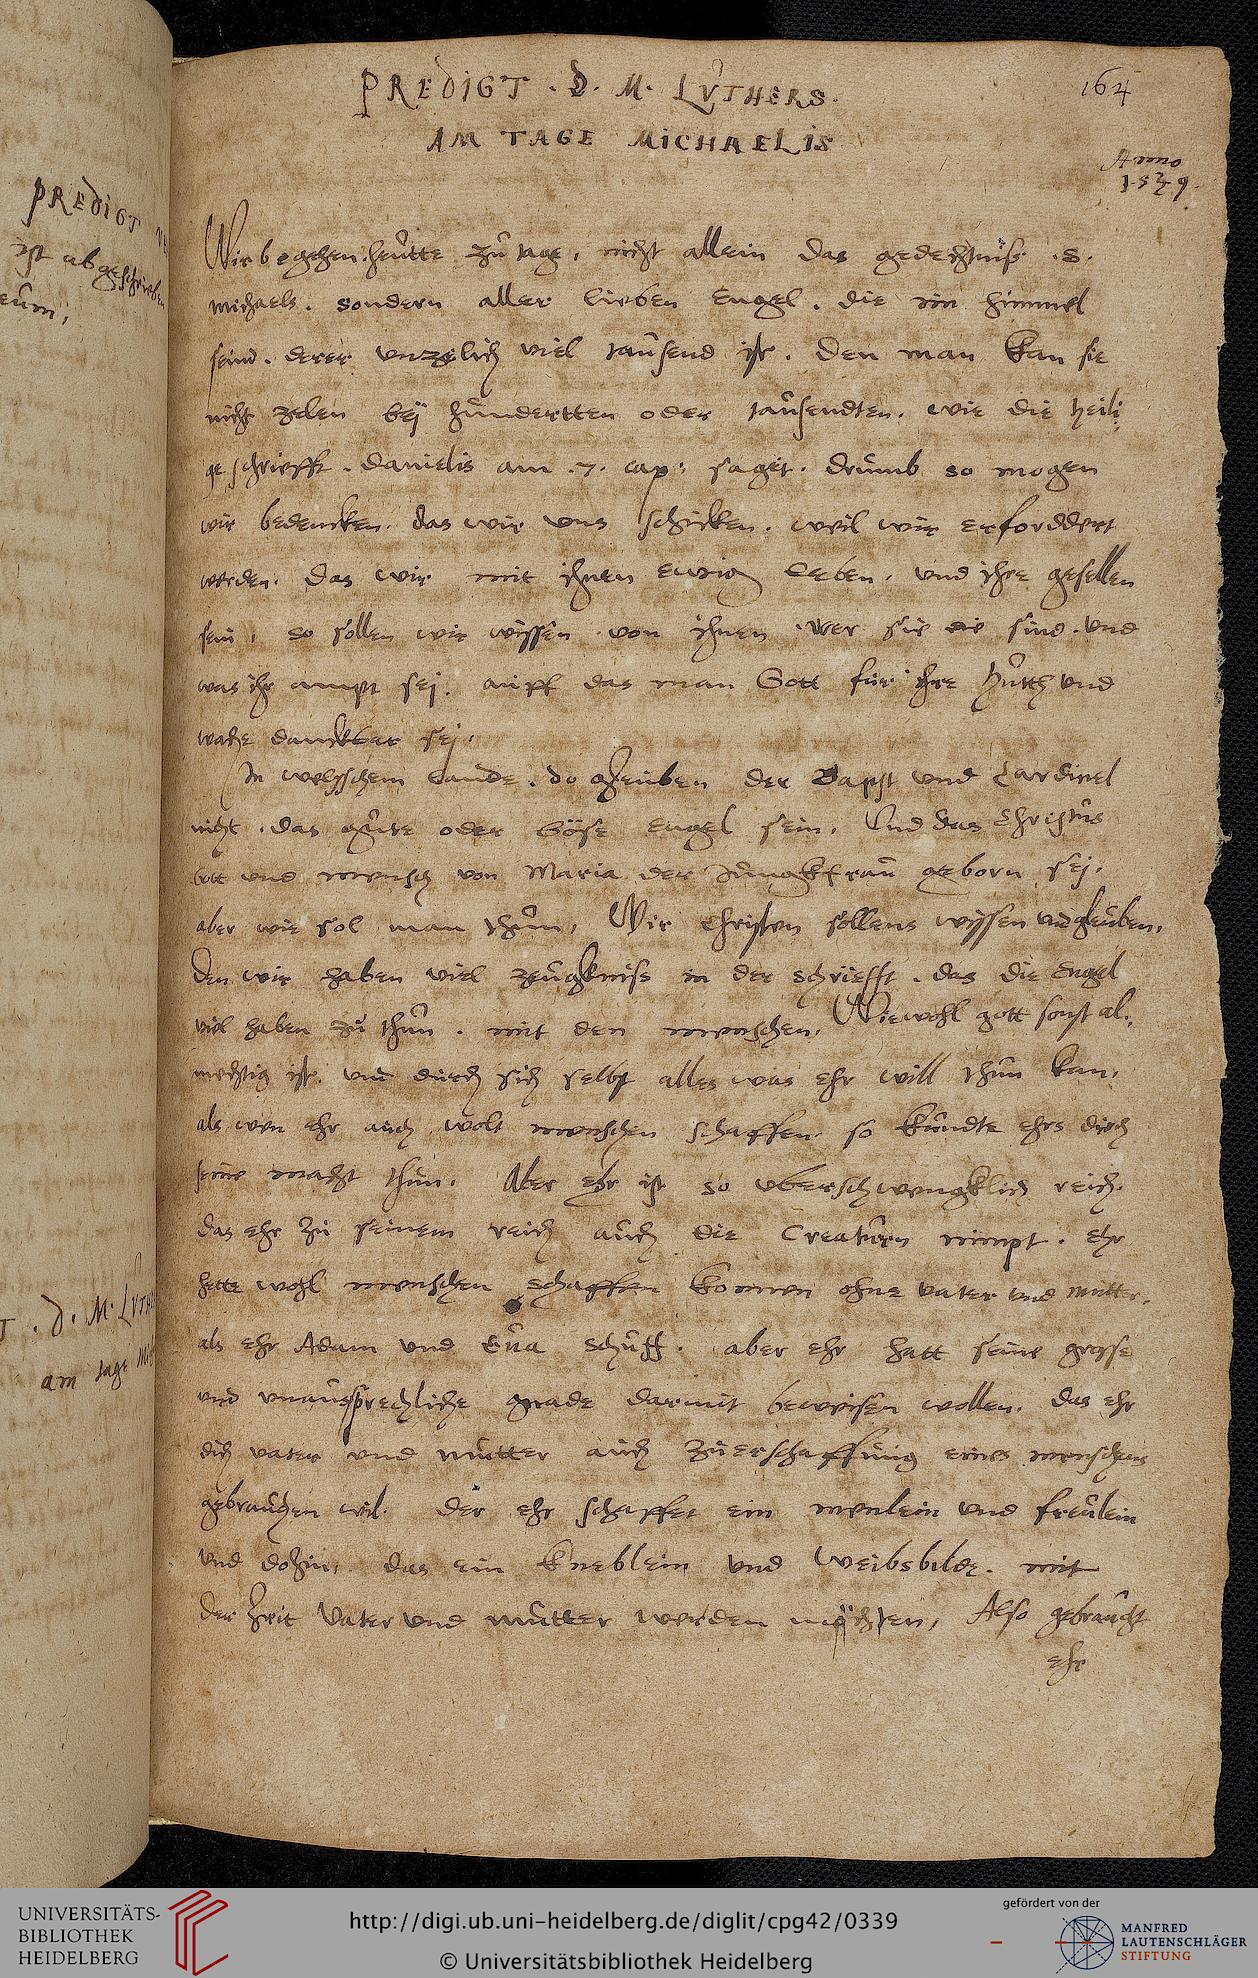 PREDIGT . D. M. LUTHERS.
AM TAGE MICHAELIS
164
Anno
1.5 4 9.
PREDIGT
ist abgeschrieben
Wir begehen heutte zu tage, nicht allein das gedechtnis .S.
Michaels. sondern aller lieben Engel. die im himmel
seind. derer unzelich viel tausend ist. Den man kan sie
nicht zelen bey hundertten oder tausendten. wie die heili:
ge schriefft. Danielis am .7. cap: saget. drumb so mogen
wir bedencken. das wir uns schicken. weil wir erforddert
werden. das wir mit ihnen ewig leben. und ihre gesellen
sein, so sollen wir wissen von ihnen. wer sie die sind. und
was ihr ampt sej. auff das man Gott für ihre hutth und
wache danckbar sej.
In welsschem lande. do gleuben der Bapst und Cardinel
nicht. das gute oder böse engel sein, Und das Christus
Gott und mensch von Maria der Jungkfrau geborn sej.
aber wie sol man thun, Wir Christen sollens wissen und gleuben,
Den wir haben viel zeugknis in der schriefft. das die Engel
viel haben zu thun. mit den menschen. Wiewohl gott sonst al:
mechtig ist. und durch sich selbst alles was ehr will thun kan.
als wen ehr auch wolt menschen schaffen. so kundte ehrs durch
seine macht thun. Aber ehr ist so uberschwengklich reich.
das ehr zu seinem reich auch die Creaturn nimpt. Ehr
hette wohl menschen schaffen konnen ohne vater und mutter,
als ehr Adam und Eua schuff. aber ehr hatt seine grosse
und unaussprechliche gnade darmit beweisen wollen. das ehr
dich vater und mutter auch zu erschaffung eines menschen
gebrauchen wil. Der ehr schaffet ein menlein und freulein
und dohin, das ein kneblein und Weibsbilde. mit
der Zeit Vater und mutter werden möchten, Also gebraucht
ehr
. D. M. LUTH
am tage
UNIVERSITÄTS-
BIBLIOTHEK
HEIDELBERG
http://digi.ub.uni-heidelberg.de/diglit/cpg42/0339
© Universitätsbibliothek Heidelberg
gefördert von der
MANFRED
LAUTENSCHLÄGER
STIFTUNG